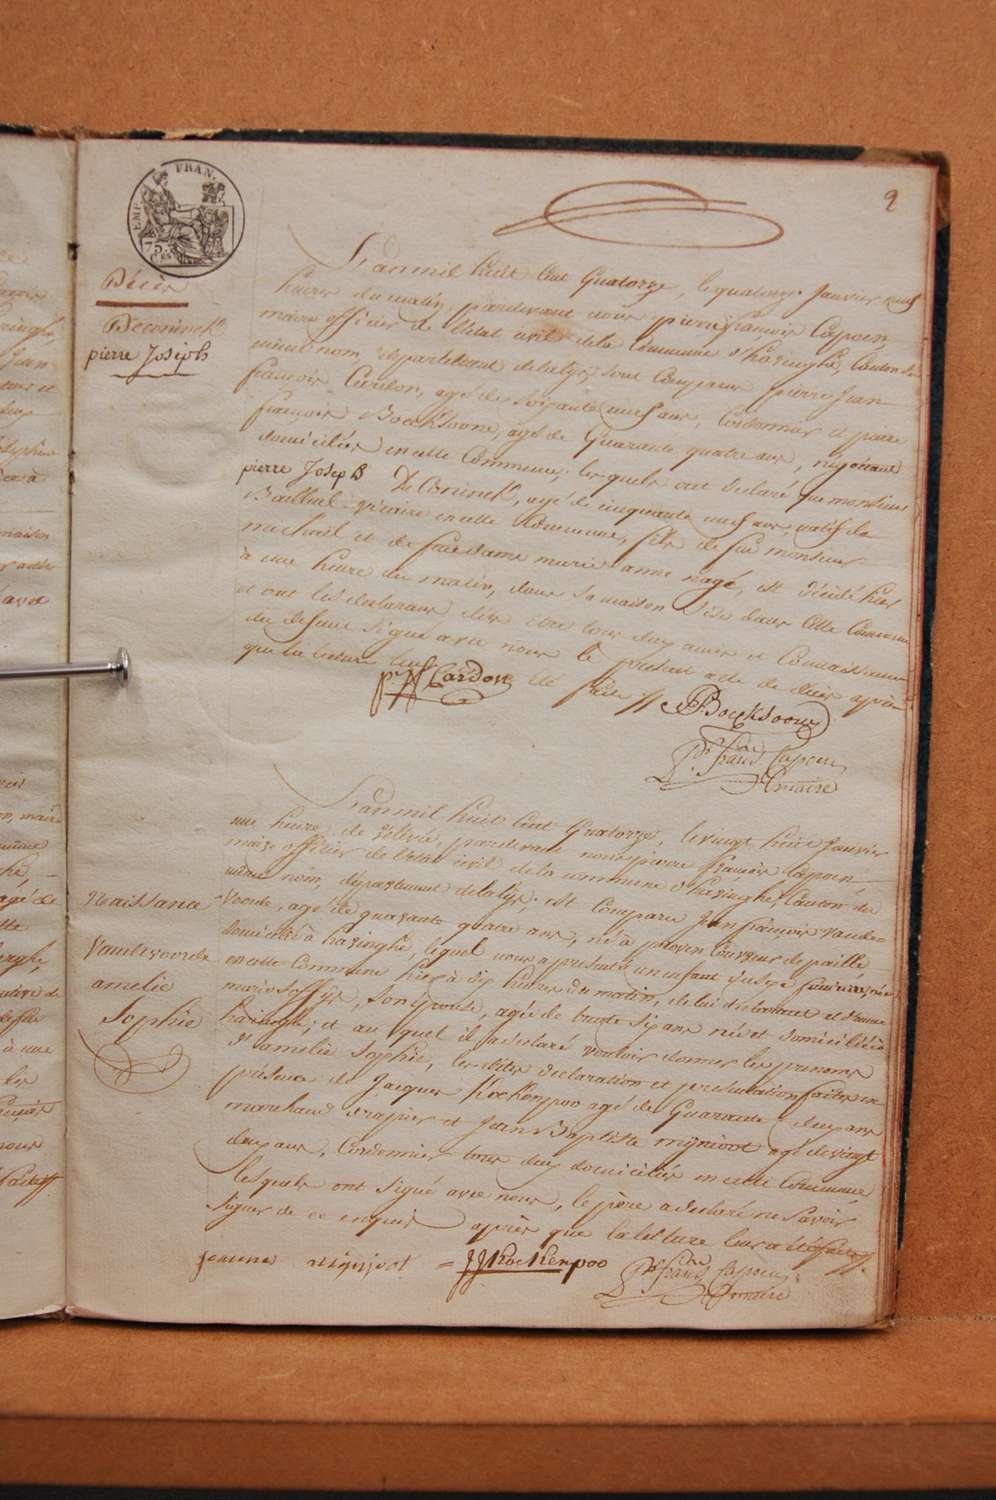 EMP. FRAN.
75. C.
2
Décès
Deconinck
pierre Joseph
L'an mil huit Cent Quatorze, le quatorze Janvier neuf
heures du matin, pardevant nous pierre françois Capoen,
maire officier de l'état civil de la Commune d'haringhe, Canton du
même nom, département de la lys, sont Comparus pierre Jean
francois Cardon, agé de soixante neuf ans, Cordonnier et pierre
françois Boecksoone, agé de Quarante quatre ans, négociant
domiciliés en cette Commune, lesquels ont déclaré que monsieur
pierre Joseph DeConinck, agé de cinquante neuf ans, natif de
Bailleul vicaire en cette Commune, fils de feu monsieur
michiel et de feue dame marie anne nagé, est décédé hier
à une heure du matin, dans sa maison sise dans cette Commune
et ont les déclarans dits être tous deux amis et Connaissances
du défunt signé avec nous le présent acte de décès après
que la lecture leur a été faite //
pr. J. f. Cardon
Boecksoone
Pr. franc. Capoen
maire
Naissance
Vandevoorde
amelie
Sophie
L'an mil huit Cent Quatorze, le vingt huit Janvier
une heure de relevée, pardevant nous pierre françois Capoen,
maire officier de l'état civil de la commune d'haringhe, Canton du
même nom, département de la lys, est Comparu Jean françois Vande=
Voorde, agé de quarante quatre ans, né à proven Couvreur de paille
domicilié à haringhe, lequel nous a présenté un enfant du sexe féminin, née
en cette Commune hier à dix heures du matin, de lui déclarant et d'anne
marie, son épouse, agée de trente six ans née et domiciliée à
haringhe; et au quel il a déclaré vouloir donner les prenoms
d'amelie Sophie, lesdites déclaration et présentation faites en
présence de Jacques Kockenpoo agé de Quarante deux ans
marchand drapier et Jean Baptiste mignot agé de vingt
deux ans, Cordonnier tous deux domiciliés en cette Commune
lesquels ont signé avec nous, le père a déclaré ne savoir
signer de ce enquis après que la lecture leur a été faite //
J J Kockenpoo
Pr. franc. Capoen
maire